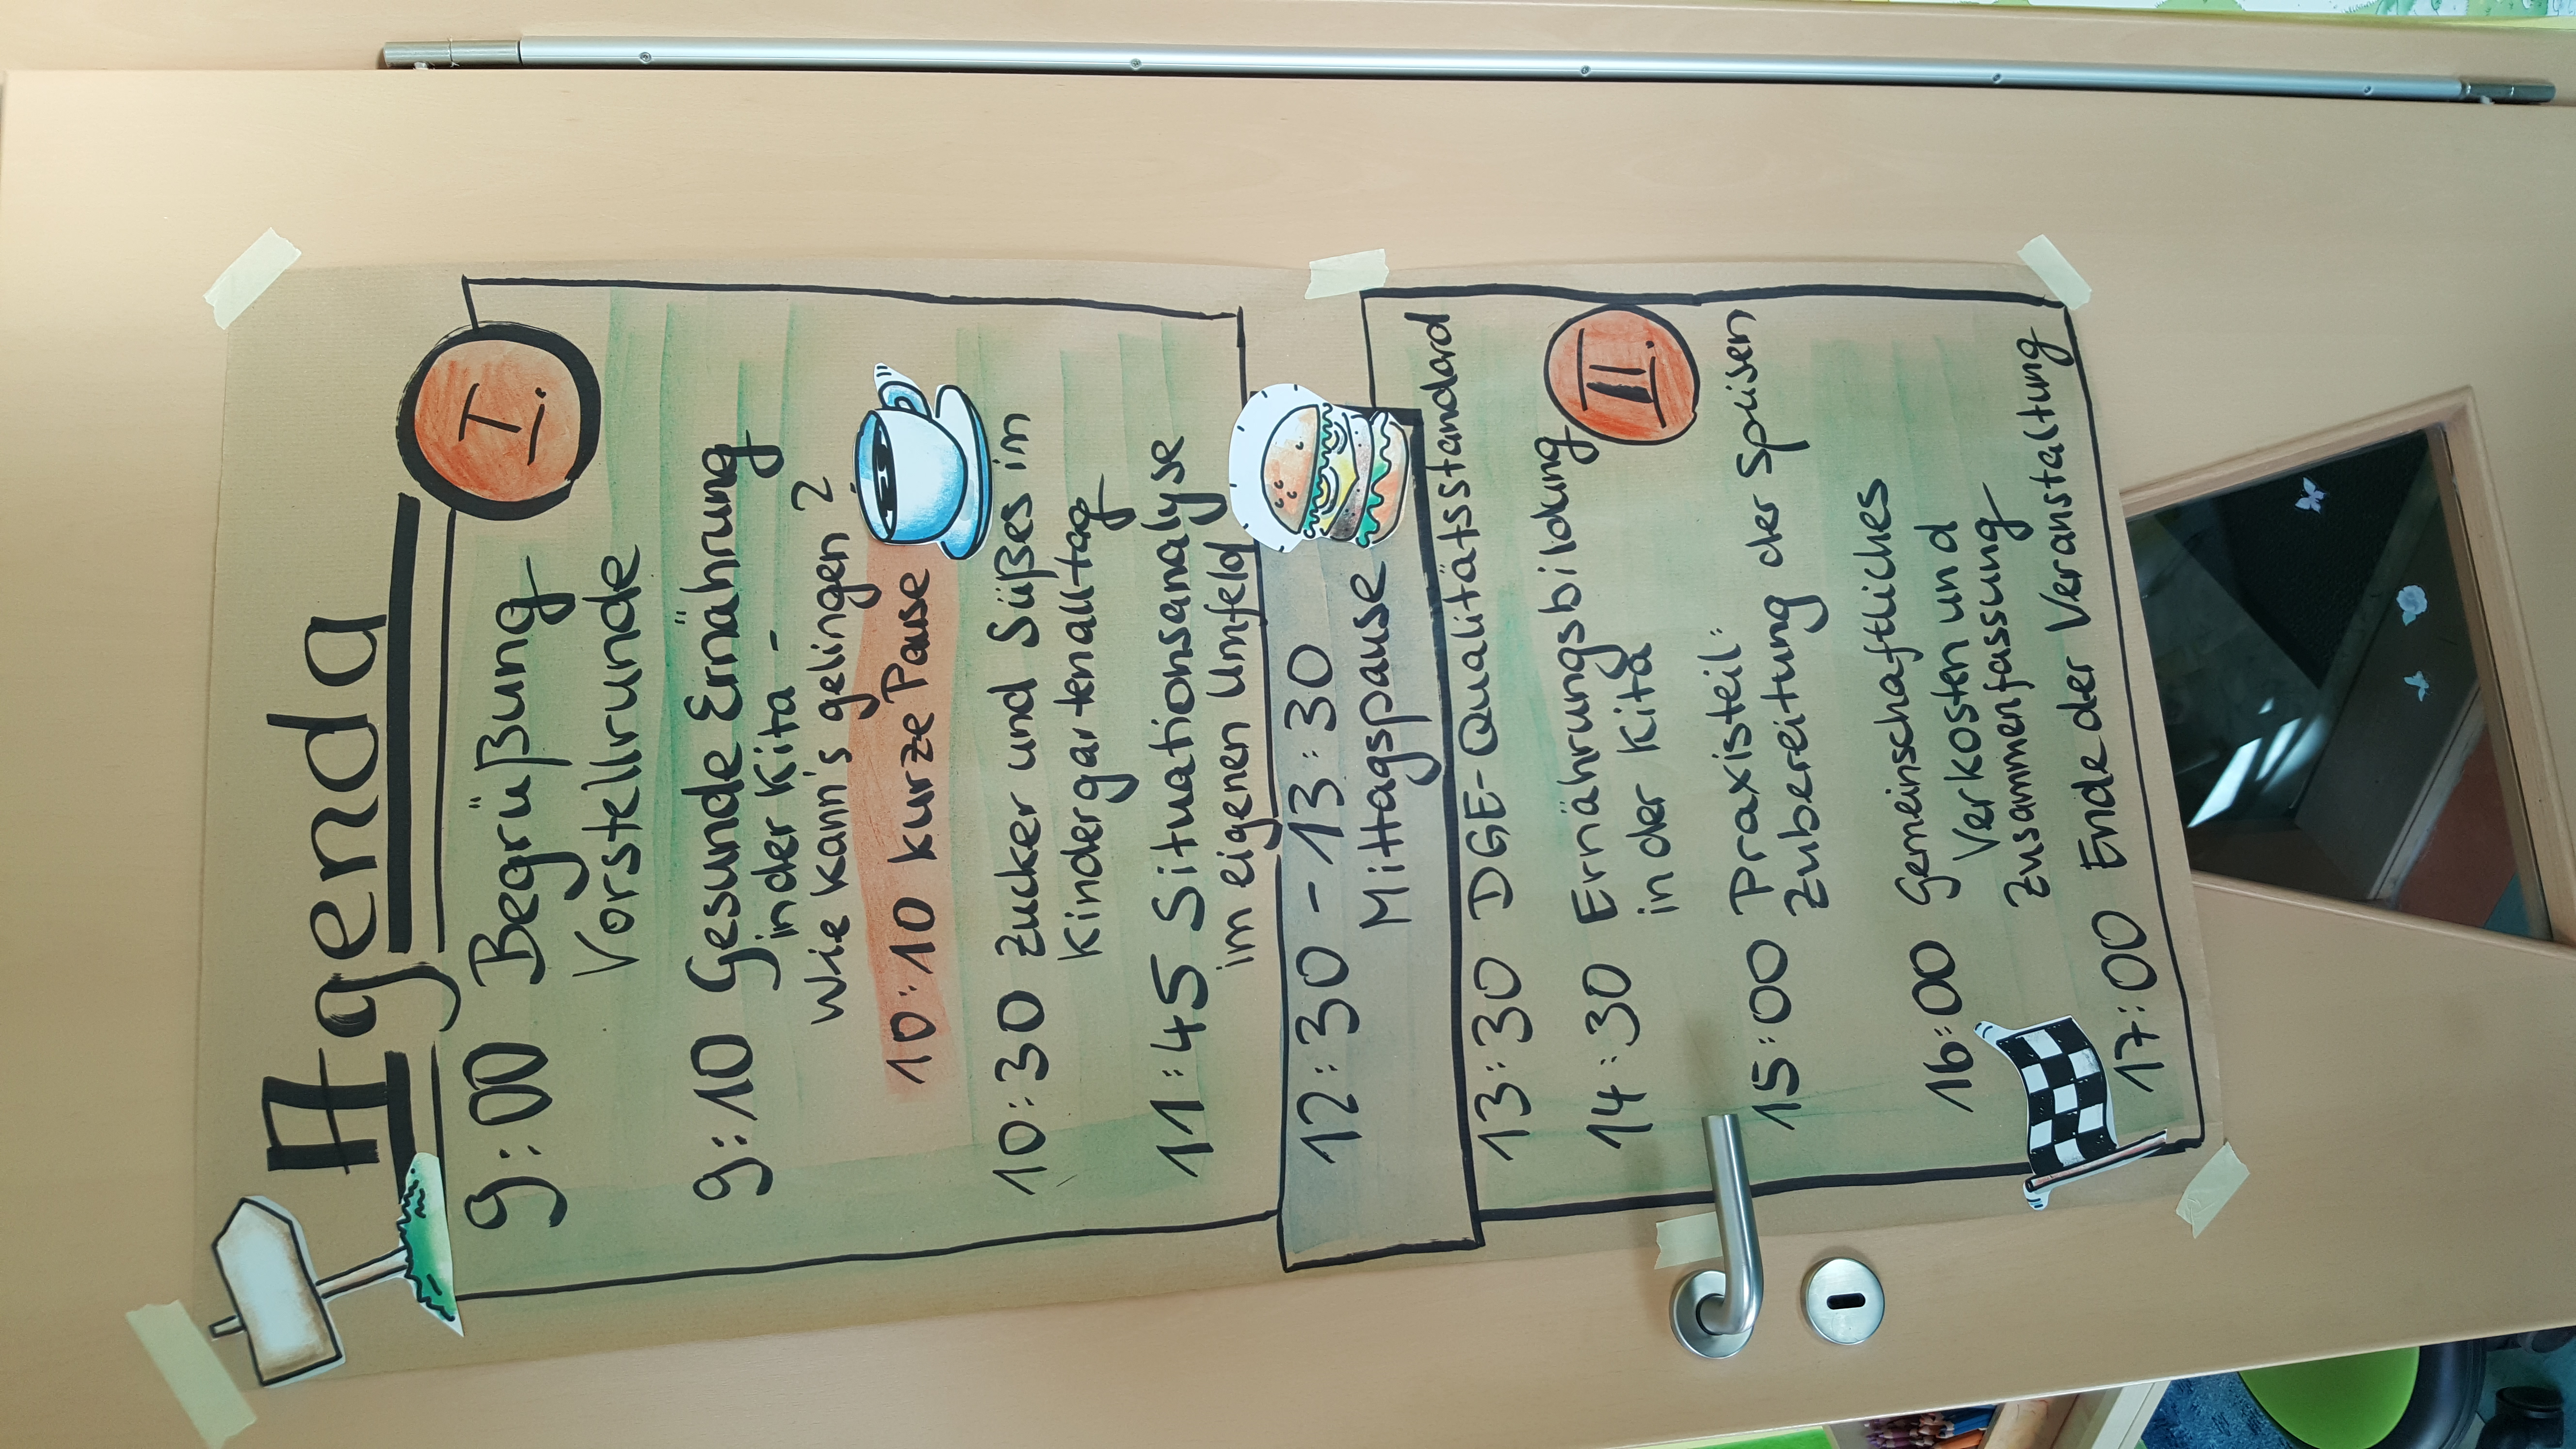 Agenda
I.
9:00 Begrüßung
Vorstellrunde
9:10 Gesunde Ernährung
in der Kita -
Wie kann's gelingen?
10:10 kurze Pause
10:30 Zucker und Süßes im
Kindergartenalltag
11:45 Situationsanalyse
im eigenen Umfeld
12:30 - 13:30
Mittagspause
13:30 DGE-Qualitätsstandard
II.
14:30 Ernährungsbildung
in der Kita
15:00 Praxisteil:
Zubereitung der Speisen
16:00 Gemeinschaftliches
Verkosten und
Zusammenfassung
17:00 Ende der Veranstaltung